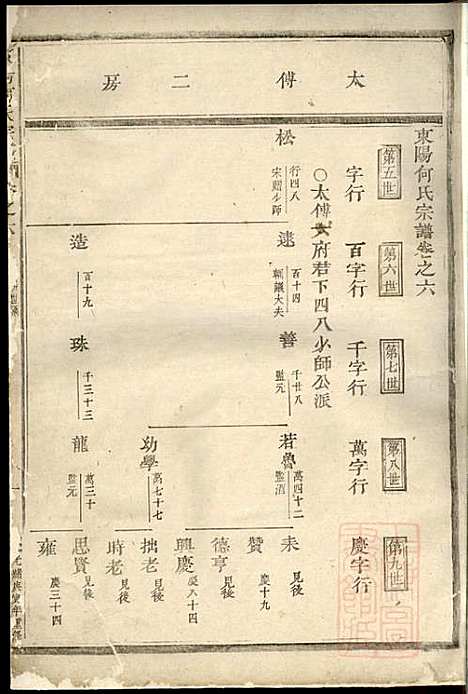 東陽何氏宗譜卷之六
太傅二房
第五世
第六世
第七世
第八世
第九世
字行
百字行
千字行
萬字行
慶字行
○太傅大府君下四八少師公派
松
行四八
宋贈少師
逮
百十四
朝議大夫
善
千廿八
監元
若魯
萬四十二
監酒
耒
見後
贊
慶十九
德亨
見後
興慶
慶八十四
幼學
萬七十七
拙老
見後
時老
見後
造
百十九
珠
千三十三
龍
萬三十
監元
思賢
見後
雍
慶三十四